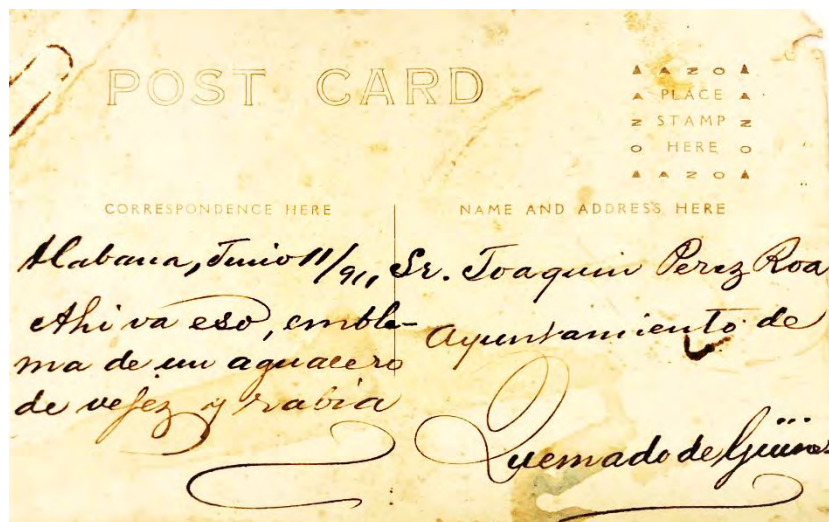 POST CARD
▲ A Z O ▲
▲ PLACE ▲
Z STAMP Z
O HERE O
▲ A Z O ▲
CORRESPONDENCE HERE
Habana, Junio 11/911
Ahi va eso, emble-
ma de un aguacero
de vejez y rabia
NAME AND ADDRESS HERE
Sr. Joaquin Perez Roa
Ayuntamiento de
Quemado de Güines